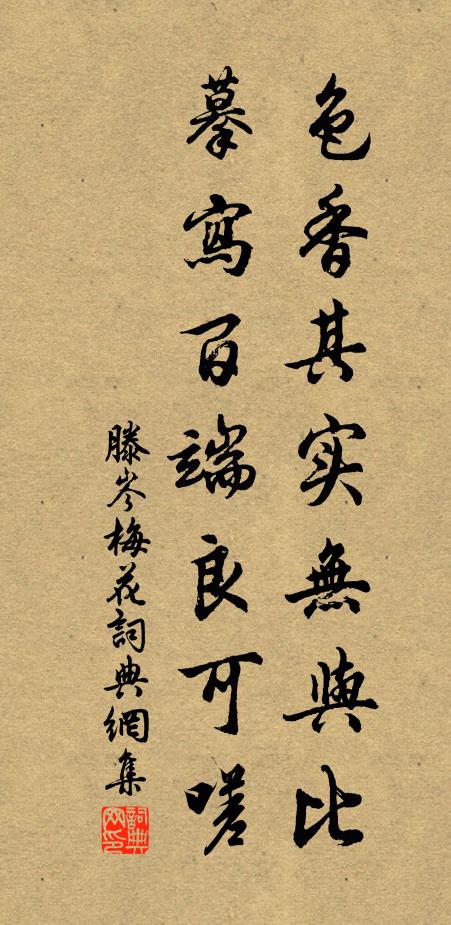 色香其实無與比
摹寫百端良可嗟
滕岑梅花詞典網集
詞典網印